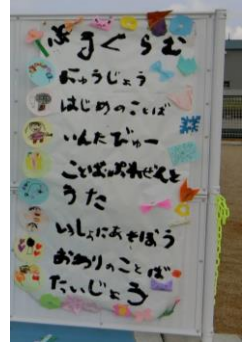 ぷろぐらむ
にゅうじょう
はじめのことば
いんたびゅー
ことばのぷれぜんと
うた
いっしょにあそぼう
おわりのことば
たいじょう